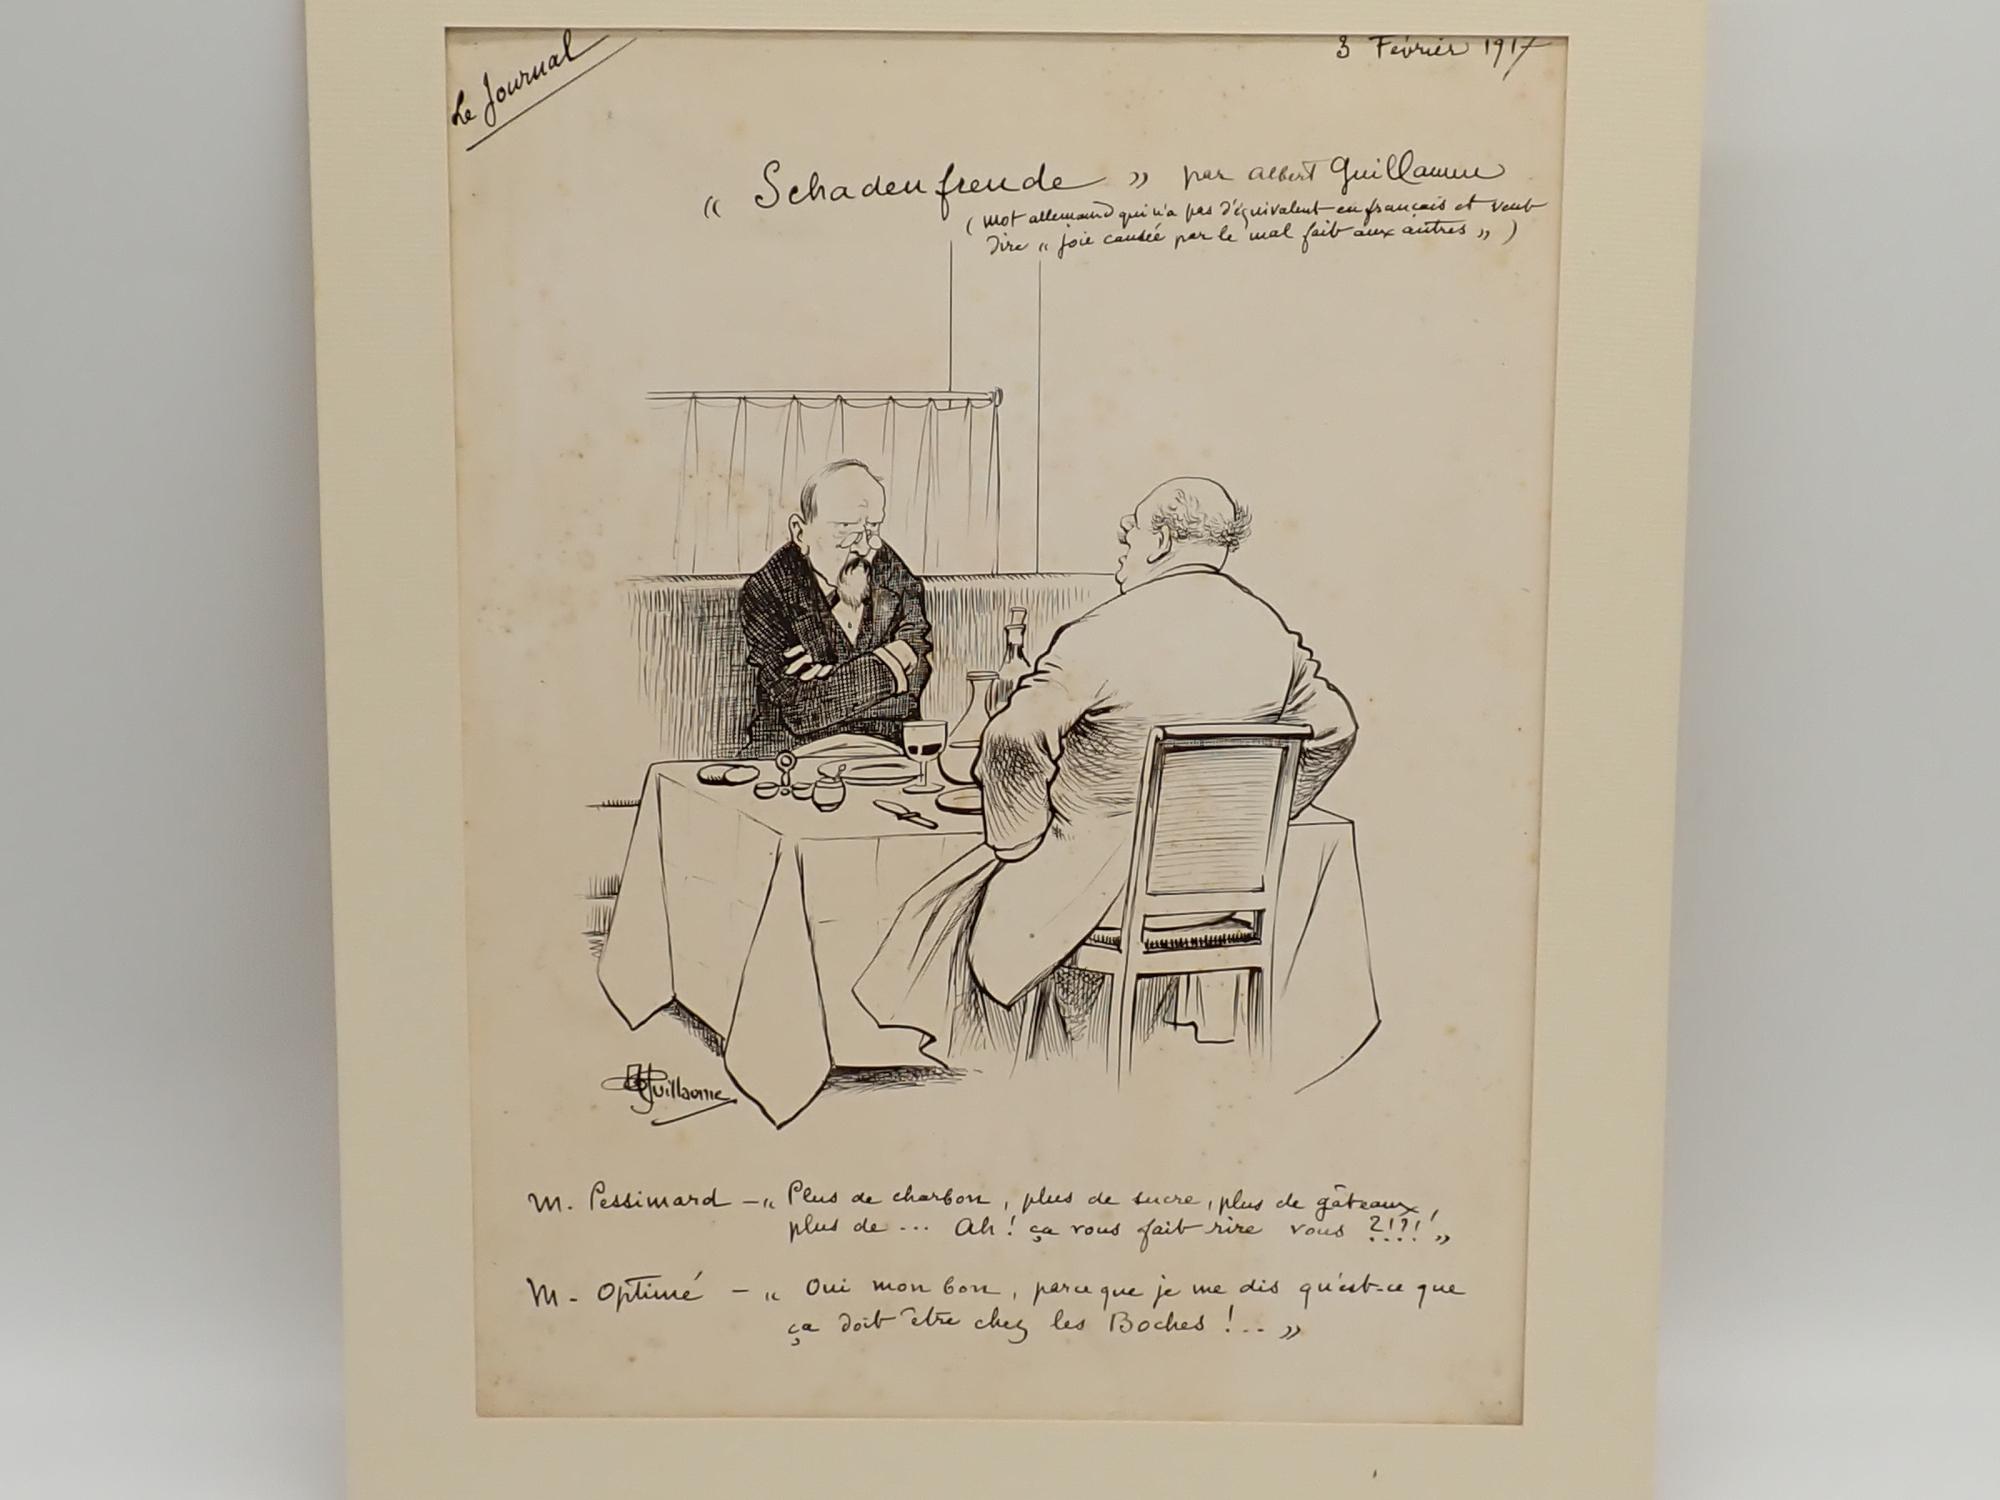 Le Journal
3 Février 1917
« Schadenfreude » par Albert Guillaume
(mot allemand qui n'a pas d'équivalent en français et veut
dire « joie causée par le mal fait aux autres »)
Guillaume
M. Pessimard - « Plus de charbon, plus de sucre, plus de gâteaux,
plus de ... Ah ! ça vous fait rire vous ?!?! »
M. Optimé - « Oui mon bon, parce que je me dis qu'est-ce que
ça doit être chez les Boches !.. »